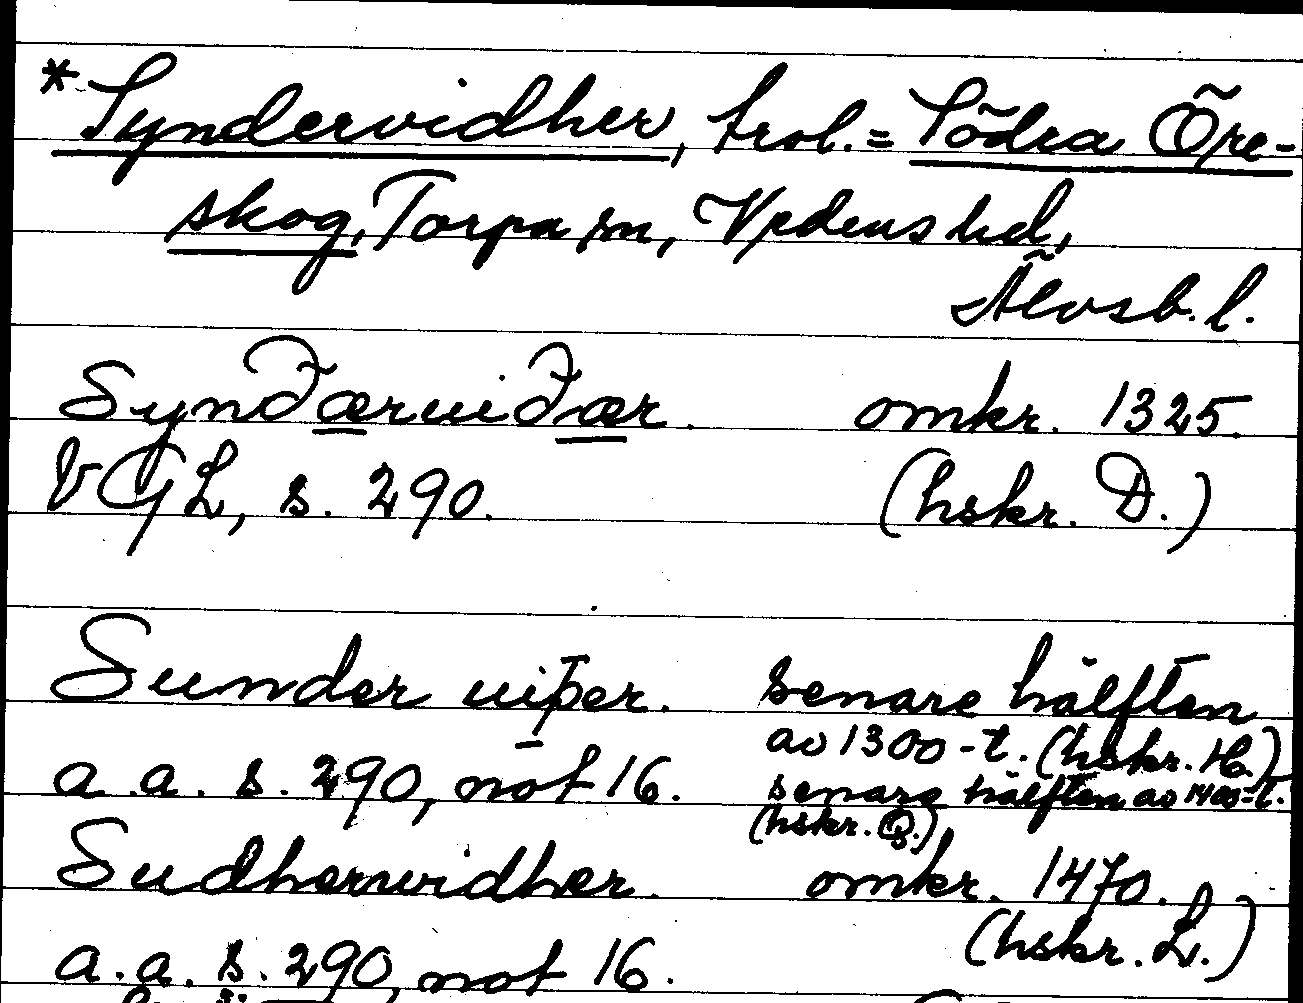 *Syndervidher, trol. = Södra Öre-
skog, Torpa sn, Vedens hd,
Älvsb. l.
Synðærviðær. omkr. 1325.
VGL, s. 290. (hskr. D.)
Sunder uiþer. senare hälften
av 1300-t. (hskr. H.)
a.a. s. 290, not 16. senare hälften av 1400-t.
(hskr. Q.)
Sudherwidher. omkr. 1470.
(hskr. L.)
a.a. s. 290, not 16.